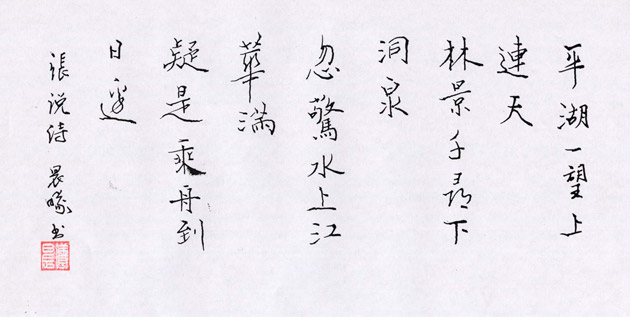 平湖一望上
連天
林景千尋下
洞泉
忽驚水上江
華滿
疑是乘舟到
日邊
張说诗 晨曦书